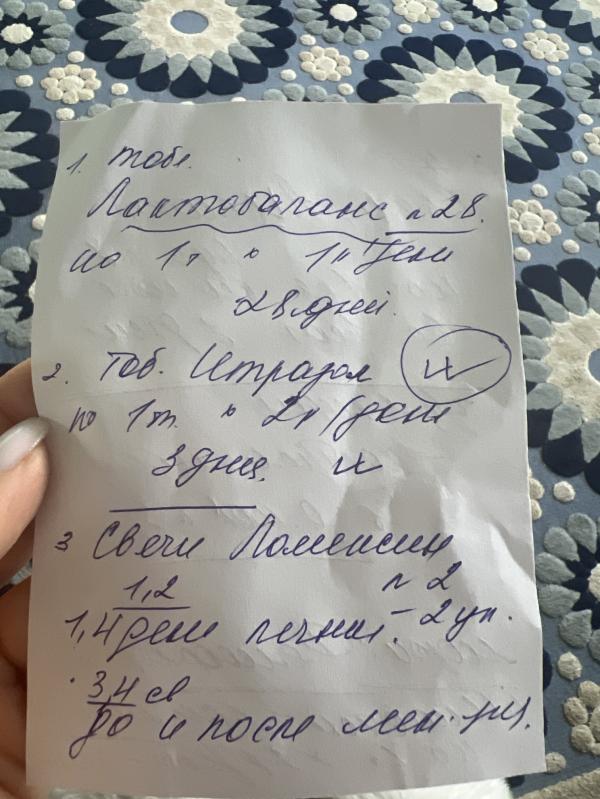 1. табл.
Лактобаланс n 28.
по 1т x 1р/день
28 дней.
2. Таб. Итразол
по 1т. x 2р/день
3 дня.
3 Свечи Ломексин
1,2 n 2
1,4 день лечния. – 2 уп.
3,4 св
до и после мен.